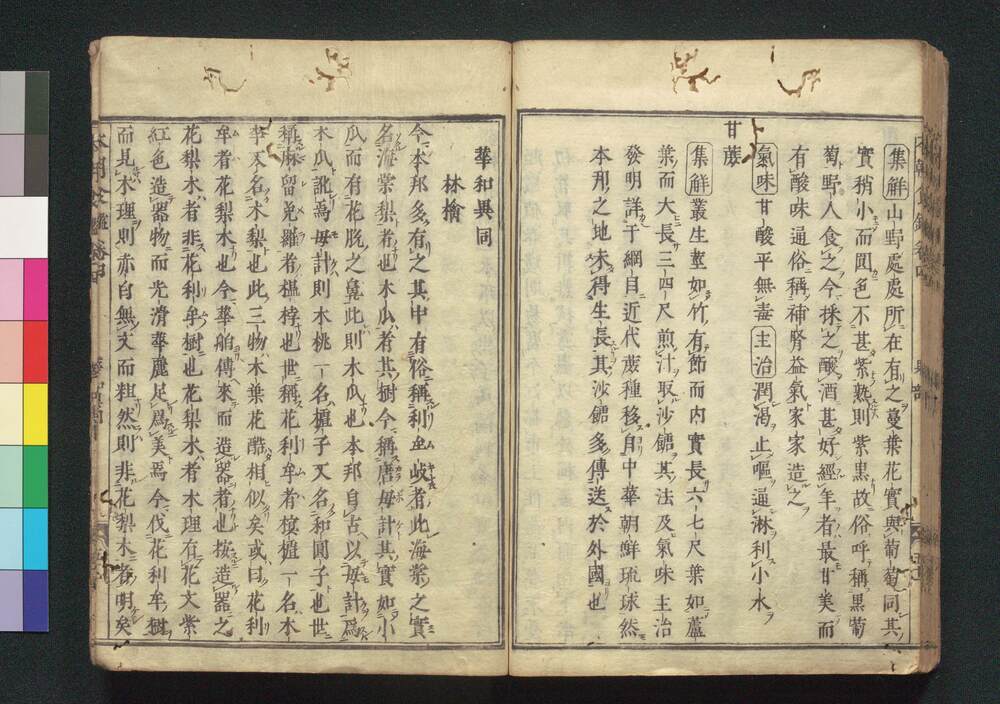 集解山野處處所在有之蔓葉花實與葡萄同其
實稍小而圓色不甚紫熟則紫黒故俗呼稱黒葡
萄野人食之今採之釀酒甚好經年者最甘美而
有酸味通俗稱補腎益氣家家造之
氣味甘酸平無毒主治潤渴止嘔通淋利小水
甘蔗
集解叢生莖如竹有節而内實長六七尺葉如蘆
葉而大長三四尺煎汁取沙餹其法及氣味主治
發明詳于綱目近代蔗種移自中華朝鮮琉球然
本邦之地未得生長其沙餹多傳送於外國也
華和異同
林檎
今本邦多有之其中有俗稱利牟岐者此海棠之實
名海棠梨者也木瓜者其樹今稱唐毎計其實如小
瓜而有花脱之鼻此則木瓜也本邦自古以毎計爲
木瓜訛焉毎計則木桃一名樝子又名和圓子也世
稱麻留免羅者榲桲也世稱花利牟者榠樝一名木
李又名木梨也此三物木葉花酷相似矣或曰花利
牟者花梨木也今華舶傳來而造器者也按造器之
花梨木者非花利牟樹也花梨木者木理有花文紫
紅色造器物而光滑華麗足爲美焉今伐花利牟樹
而見木理則赤白無文而粗然則非花梨木者明矣